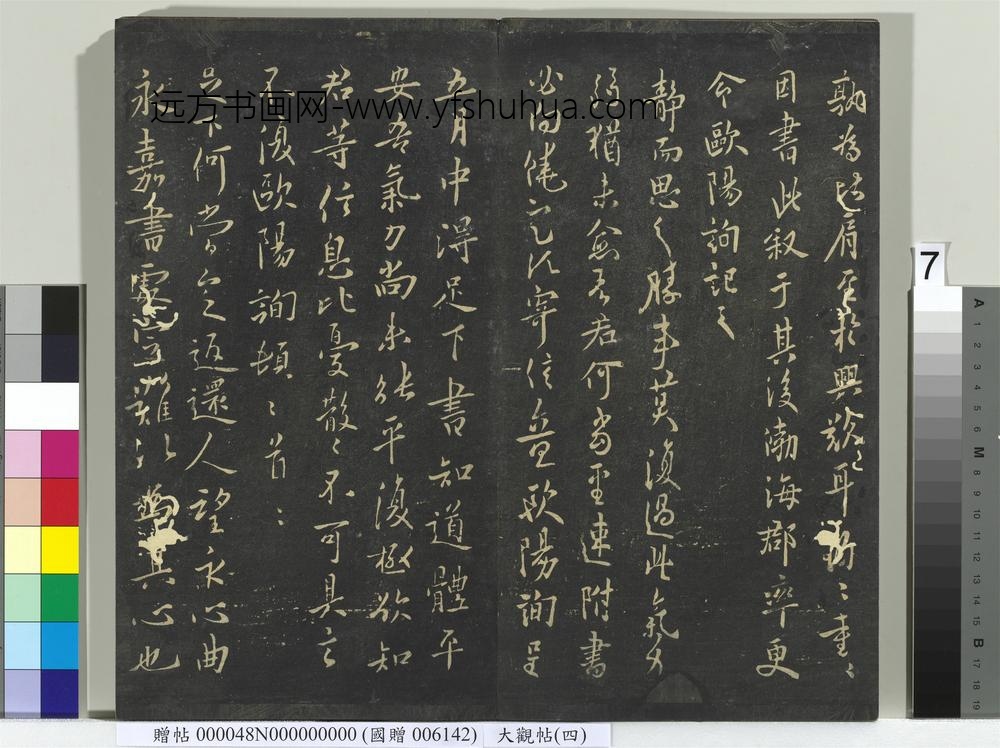 孰為比肩至於興歎耳
因書此叙于其後渤海郡率更
令歐陽詢記之
靜而思之勝事莫復過此氣力
弱猶未愈吾君何當至速附書
必向饒定以寄信 歐陽詢呈
五月中得足下書知道體平
安吾氣力尚未能平復極欲知
君等信息比憂散〻不可具言
不復歐陽詢頓〻首〻
吳下何當定返還人望示心曲
永嘉書 難以為其心也
远方书画网-www.yfshuhua.com
7
A 1 2 3 4 5 6 M 8 9 10 11 12 13 14 15 B 17 18 19
贈帖 000048N000000000 (國贈 006142) 大觀帖(四)